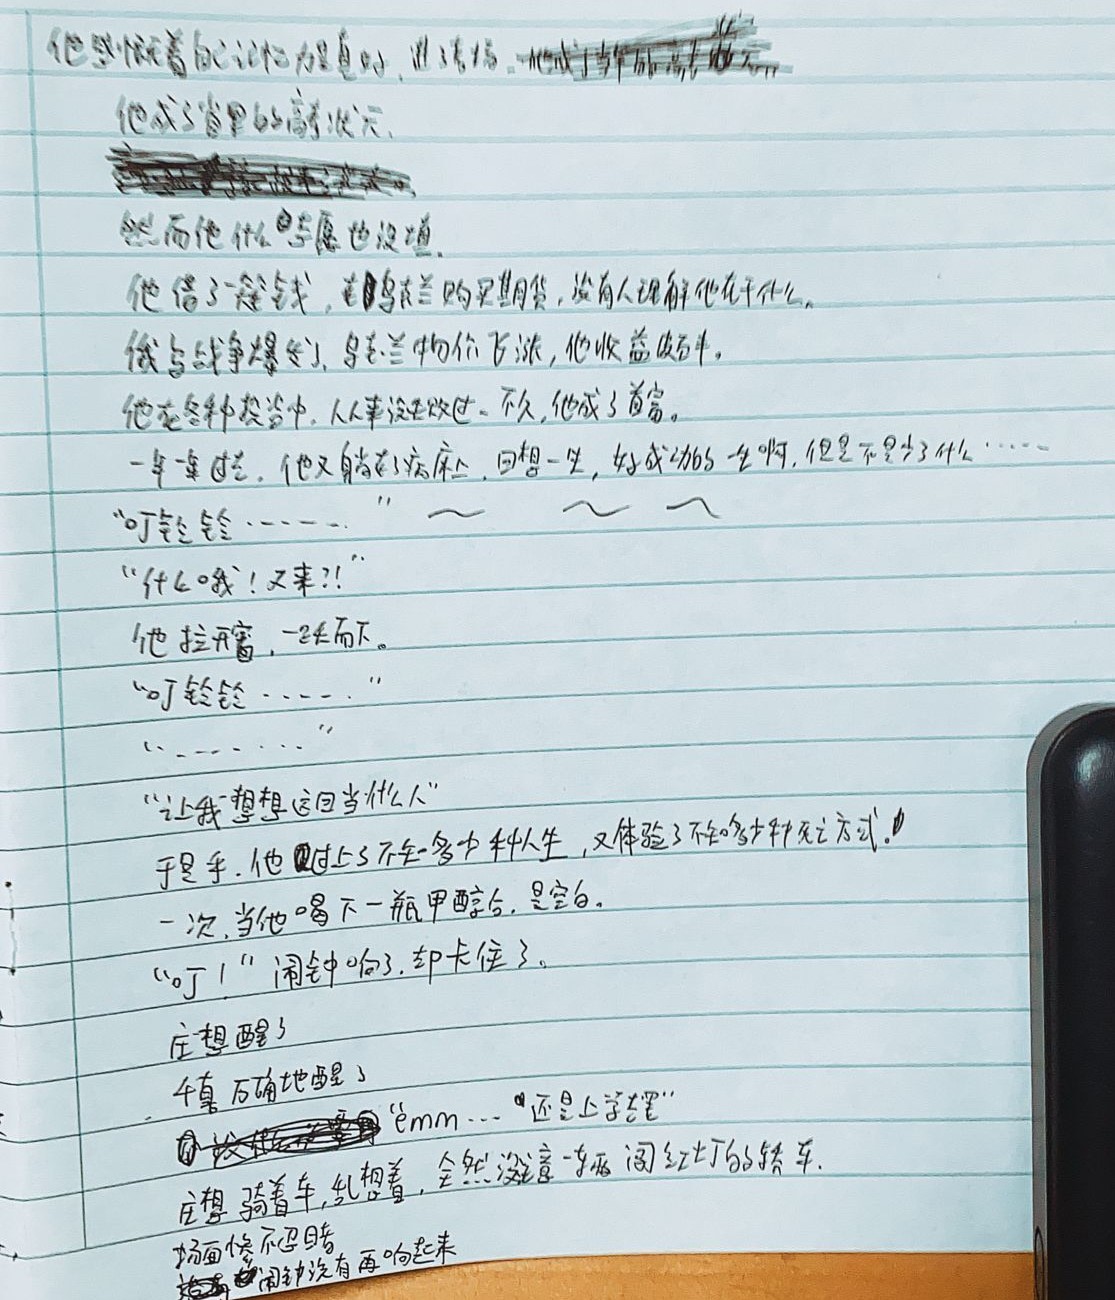 他感慨着自己记忆力是真好，进了考场。
他成了省里的高考状元，
然而他什么志愿也没填，
他借了一笔钱，在乌克兰购买期货，没有人理解他在干什么。
俄乌战争爆发了，乌克兰物价飞涨，他收益百。
他在各种投资中，从来没失败过。不久，他成了首富。
一年一年过去，他又躺在了病床上，回想一生，好成功的一生啊，但是不是少了什么……
“叮铃铃……”
“什么哦！又来？！”
他拉开窗，一跃而下。
“叮铃铃……”
“……”
“让我想想这回当什么人”
于是乎，他过上了不知多少种人生，又体验了不知多少种死亡方式！
一次，当他喝下一瓶甲醇后，是空白。
“叮！”闹钟响了，却卡住了。
庄想醒了
千真万确地醒了
“emm…还是上学去罢”
庄想骑着车，乱想着，全然没注意一辆闯红灯的轿车，
场面惨不忍睹
闹钟没有再响起来